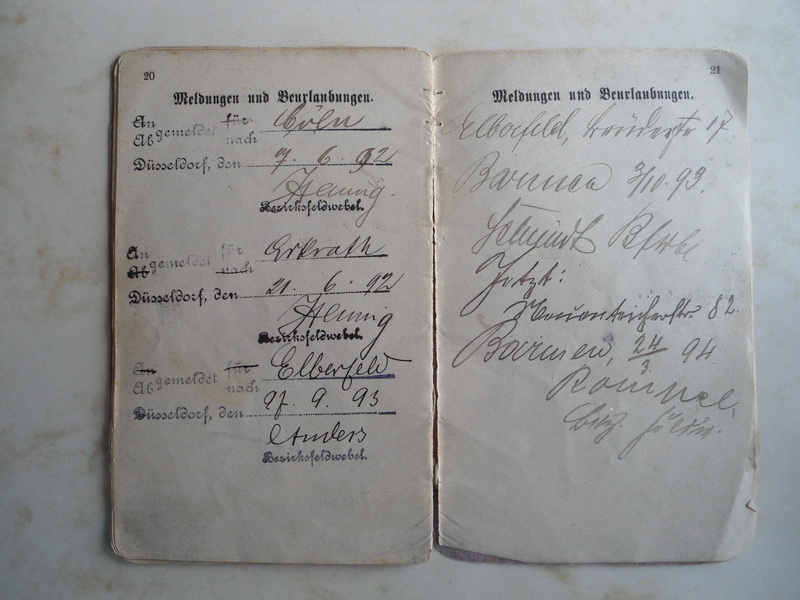 20
Meldungen und Beurlaubungen.
An
Ab gemeldet für nach Cöln
Düsseldorf, den 7. 6. 92
Hennig.
Bezirksfeldwebel.
An
Ab gemeldet für nach Erkrath
Düsseldorf, den 21. 6. 92
Hennig
Bezirksfeldwebel.
An
Ab gemeldet für nach Elberfeld
Düsseldorf, den 27. 9. 93
Anders
Bezirksfeldwebel.
21
Meldungen und Beurlaubungen.
Elberfeld, 17
Barmen 3/10. 93.
Schmidt
Jetzt:
82.
Barmen, 24/3. 94